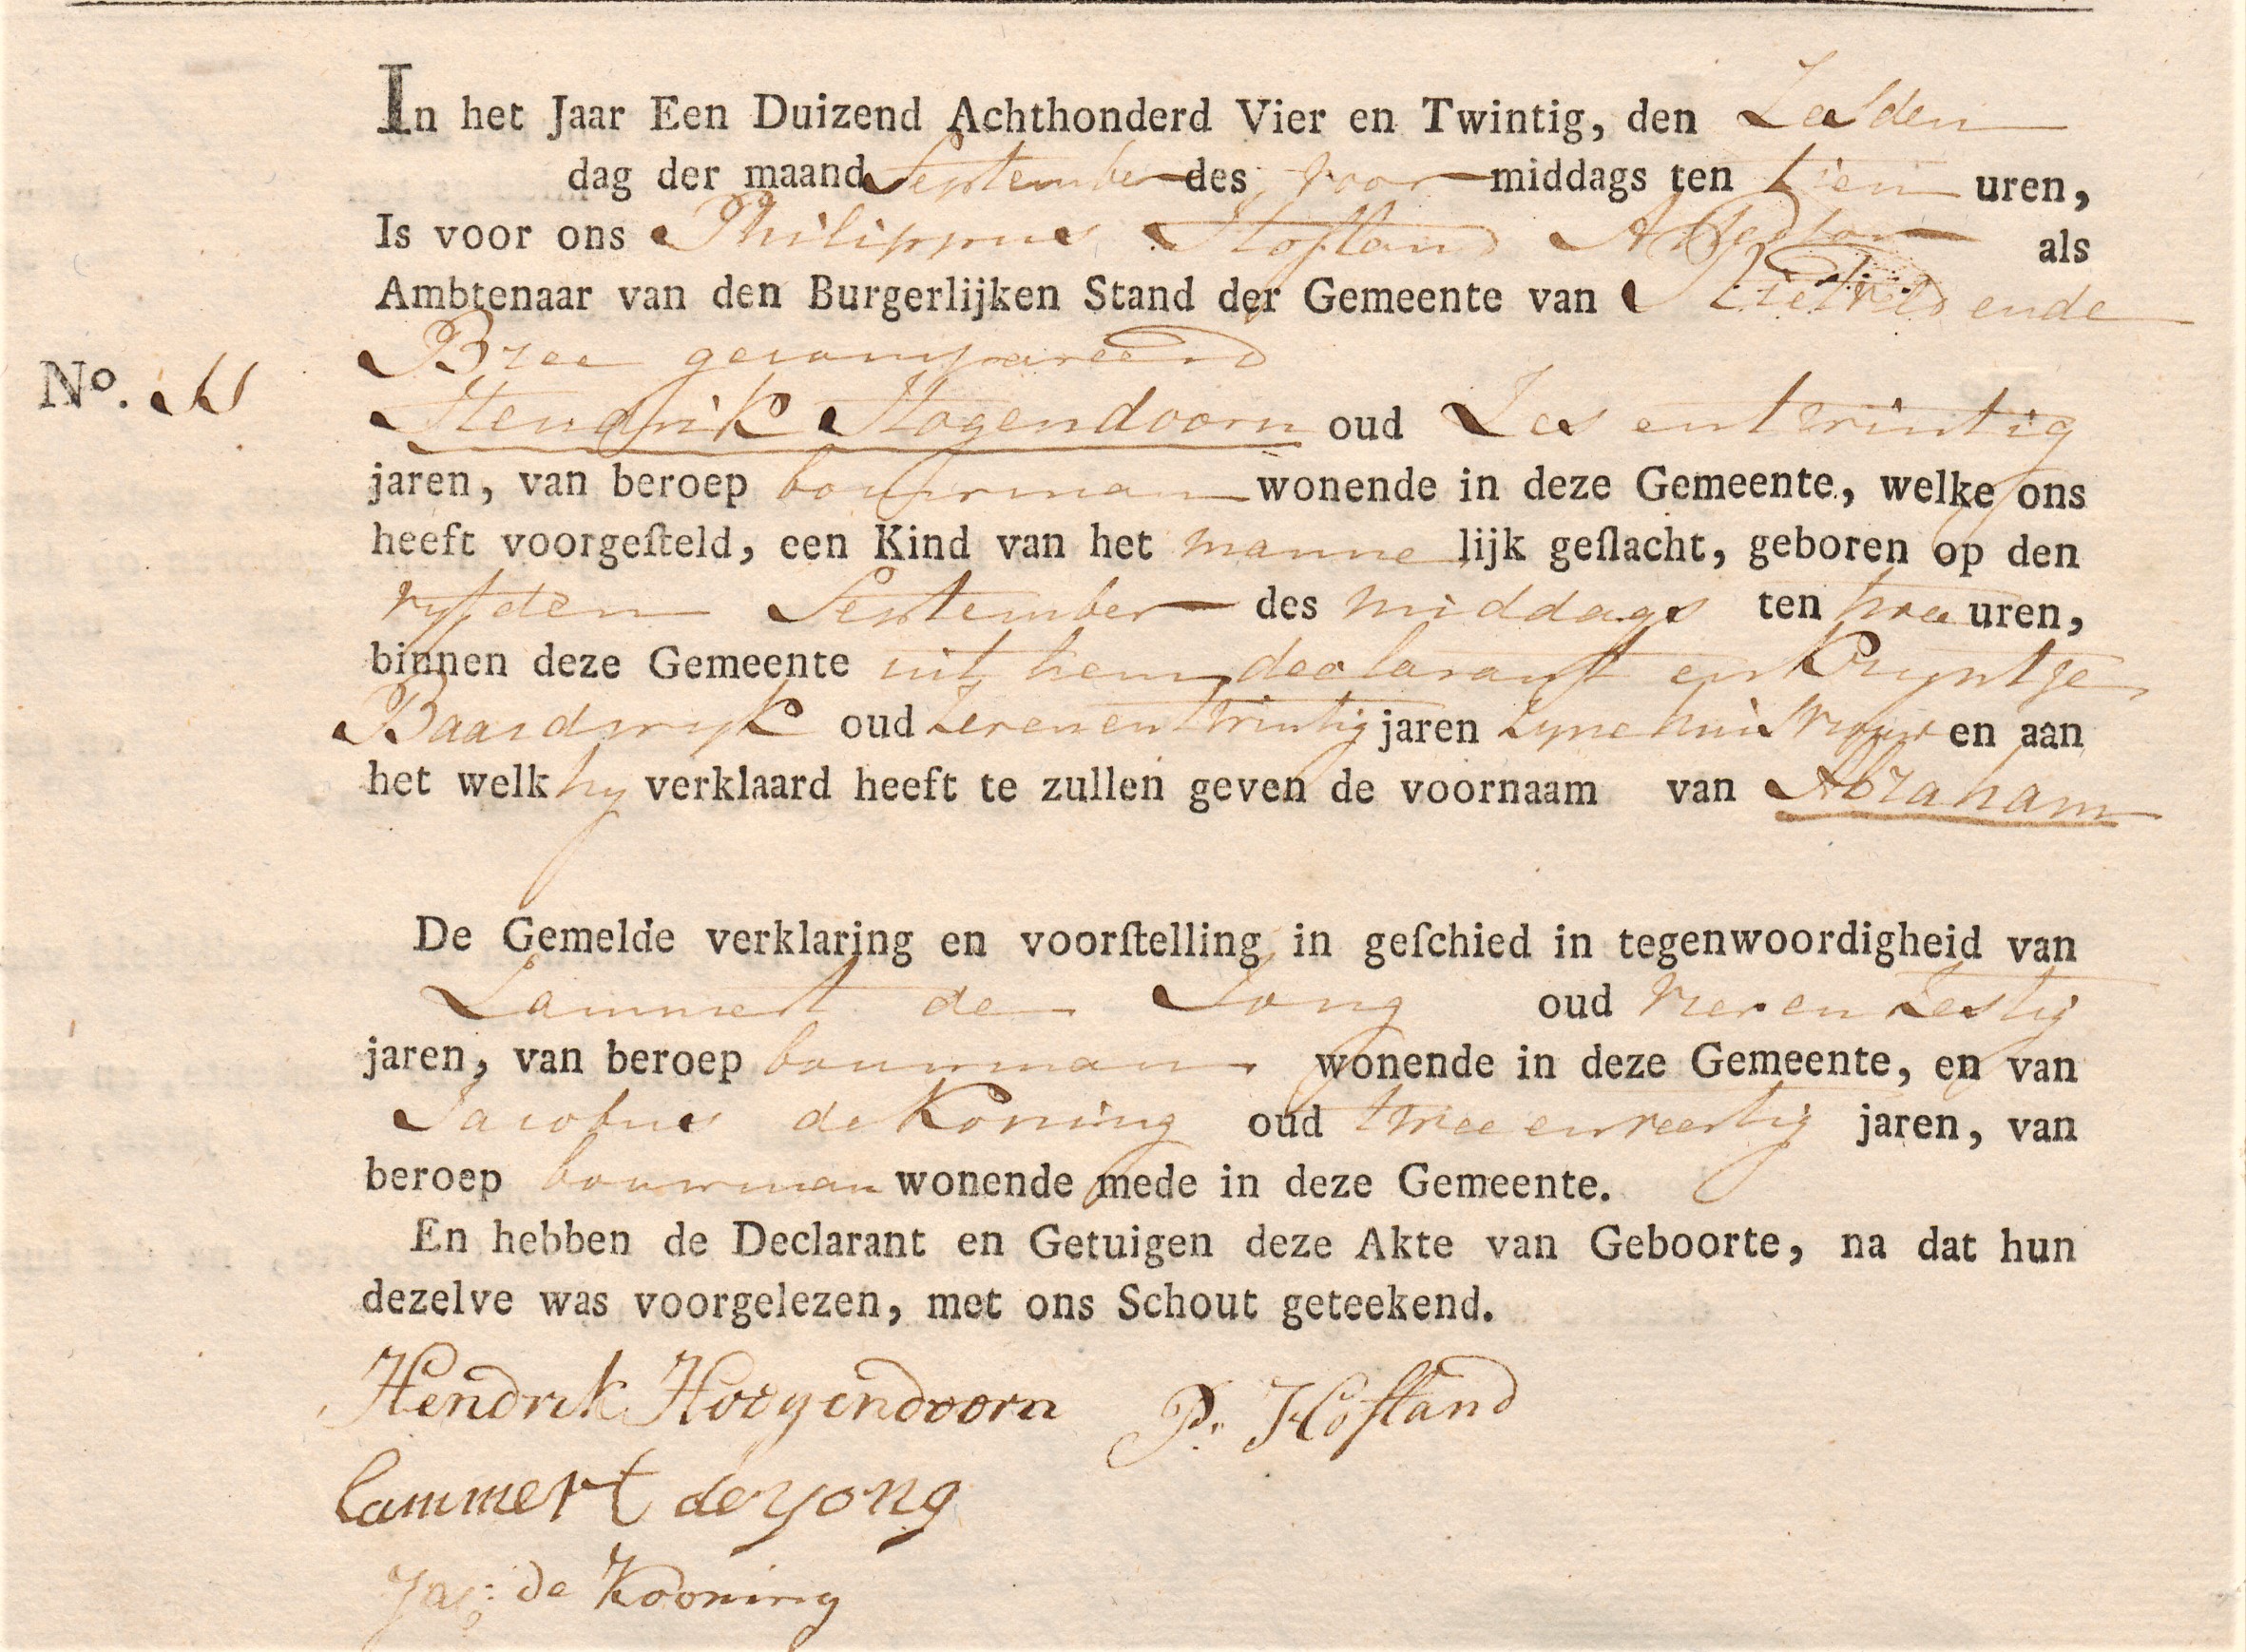 In het Jaar Een Duizend Achthonderd Vier en Twintig, den Zesden
dag der maand September des voor middags ten tien uren,
Is voor ons Philippus Hofland als
Ambtenaar van den Burgerlijken Stand der Gemeente van Rietveld ende
Bree gecompareerd
No.
Hendrik Hogendoorn oud Zes entwintig
jaren, van beroep bouwman wonende in deze Gemeente, welke ons
heeft voorgeſteld, een Kind van het manne lijk geſlacht, geboren op den
vyfden September des middags ten twee uren,
binnen deze Gemeente uit hem declarant en Kryntje
Baardwyk oud Zevenentwintig jaren Zyne huisvrouw en aan
het welk hy verklaard heeft te zullen geven de voornaam van Abraham
De Gemelde verklaring en voorſtelling in geſchied in tegenwoordigheid van
Lammert de Jong oud vier en Zestig
jaren, van beroep bouwman wonende in deze Gemeente, en van
Jacobus de Koning oud twee en veertig jaren, van
beroep bouwman wonende mede in deze Gemeente.
En hebben de Declarant en Getuigen deze Akte van Geboorte, na dat hun
dezelve was voorgelezen, met ons Schout geteekend.
Hendrik Hoogendoorn P. Hofland
Lammert de yong
Jas: de Kooning